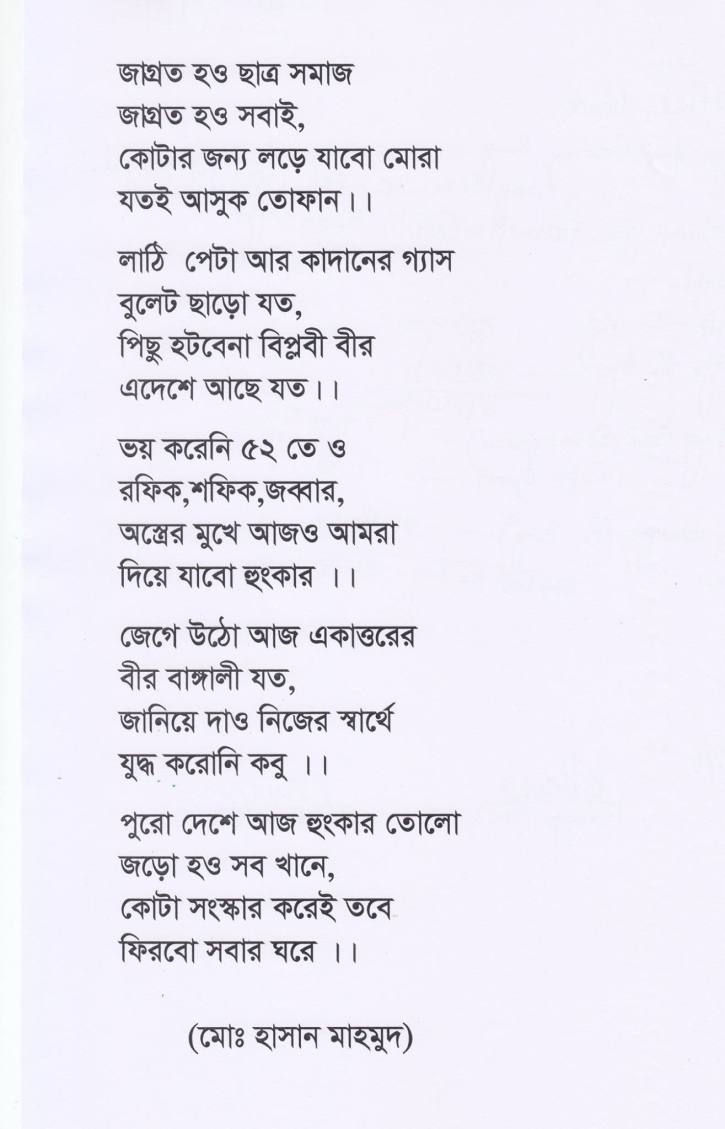 জাগ্রত হও ছাত্র সমাজ
জাগ্রত হও সবাই,
কোটার জন্য লড়ে যাবো মোরা
যতই আসুক তোফান।।
লাঠি পেটা আর কাদানের গ্যাস
বুলেট ছাড়ো যত,
পিছু হটবেনা বিপ্লবী বীর
এদেশে আছে যত।।
ভয় করেনি ৫২ তে ও
রফিক,শফিক,জব্বার,
অস্ত্রের মুখে আজও আমরা
দিয়ে যাবো হুংকার ।।
জেগে উঠো আজ একাত্তরের
বীর বাঙ্গালী যত,
জানিয়ে দাও নিজের স্বার্থে
যুদ্ধ করোনি কবু ।।
পুরো দেশে আজ হুংকার তোলো
জড়ো হও সব খানে,
কোটা সংস্কার করেই তবে
ফিরবো সবার ঘরে ।।
(মোঃ হাসান মাহমুদ)